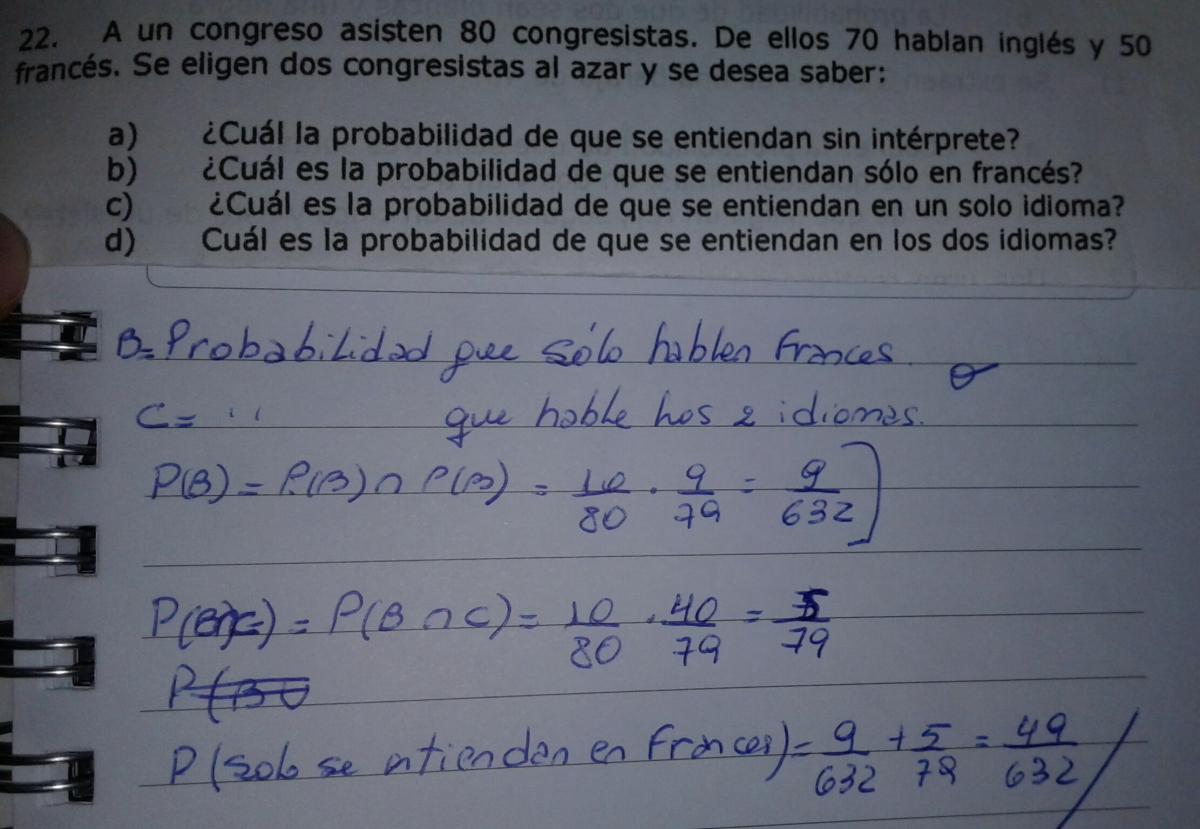 22. A un congreso asisten 80 congresistas. De ellos 70 hablan inglés y 50
francés. Se eligen dos congresistas al azar y se desea saber:
a) ¿Cuál la probabilidad de que se entiendan sin intérprete?
b) ¿Cuál es la probabilidad de que se entiendan sólo en francés?
c) ¿Cuál es la probabilidad de que se entiendan en un solo idioma?
d) Cuál es la probabilidad de que se entiendan en los dos idiomas?
B= Probabilidad que sólo hablen Frances.
C= '' que hable los 2 idiomas.
P(B) = P(B) ∩ P(B) = 10/80 . 9/79 = 9/632
= P(B ∩ C) = 10/80 . 40/79 = 5/79
P(solo se entienden en Frances) = 9/632 + 5/79 = 49/632